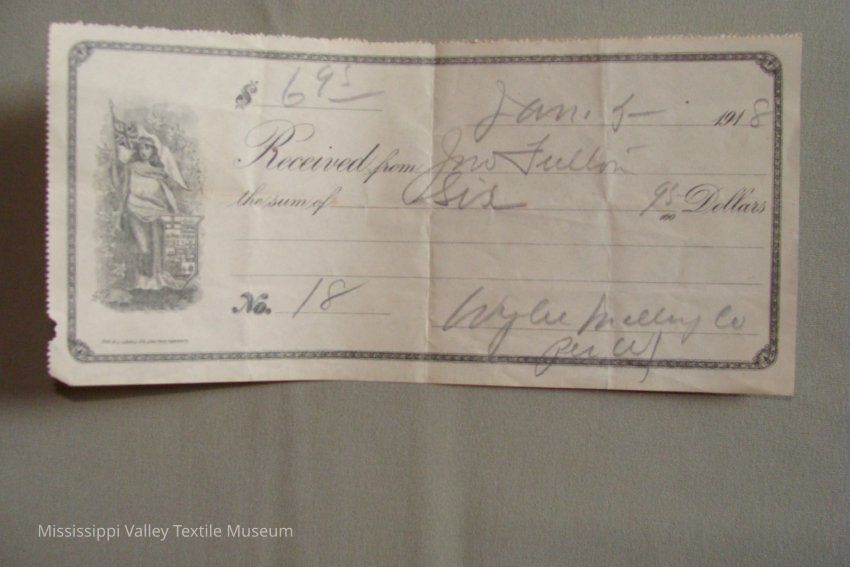 $ 6 95
Jan. 5 1918
Received from Jno Fulton
the sum of Six 95/100 Dollars
No. 18
Wylie Milling Co
Per
Mississippi Valley Textile Museum